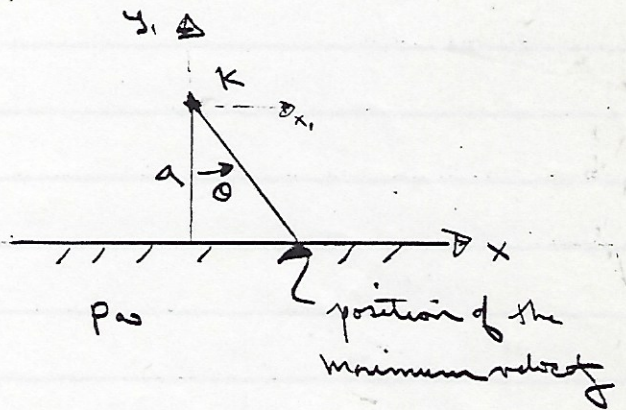 y₁
K
x₁
a
θ
x
position of the
maximum velocity